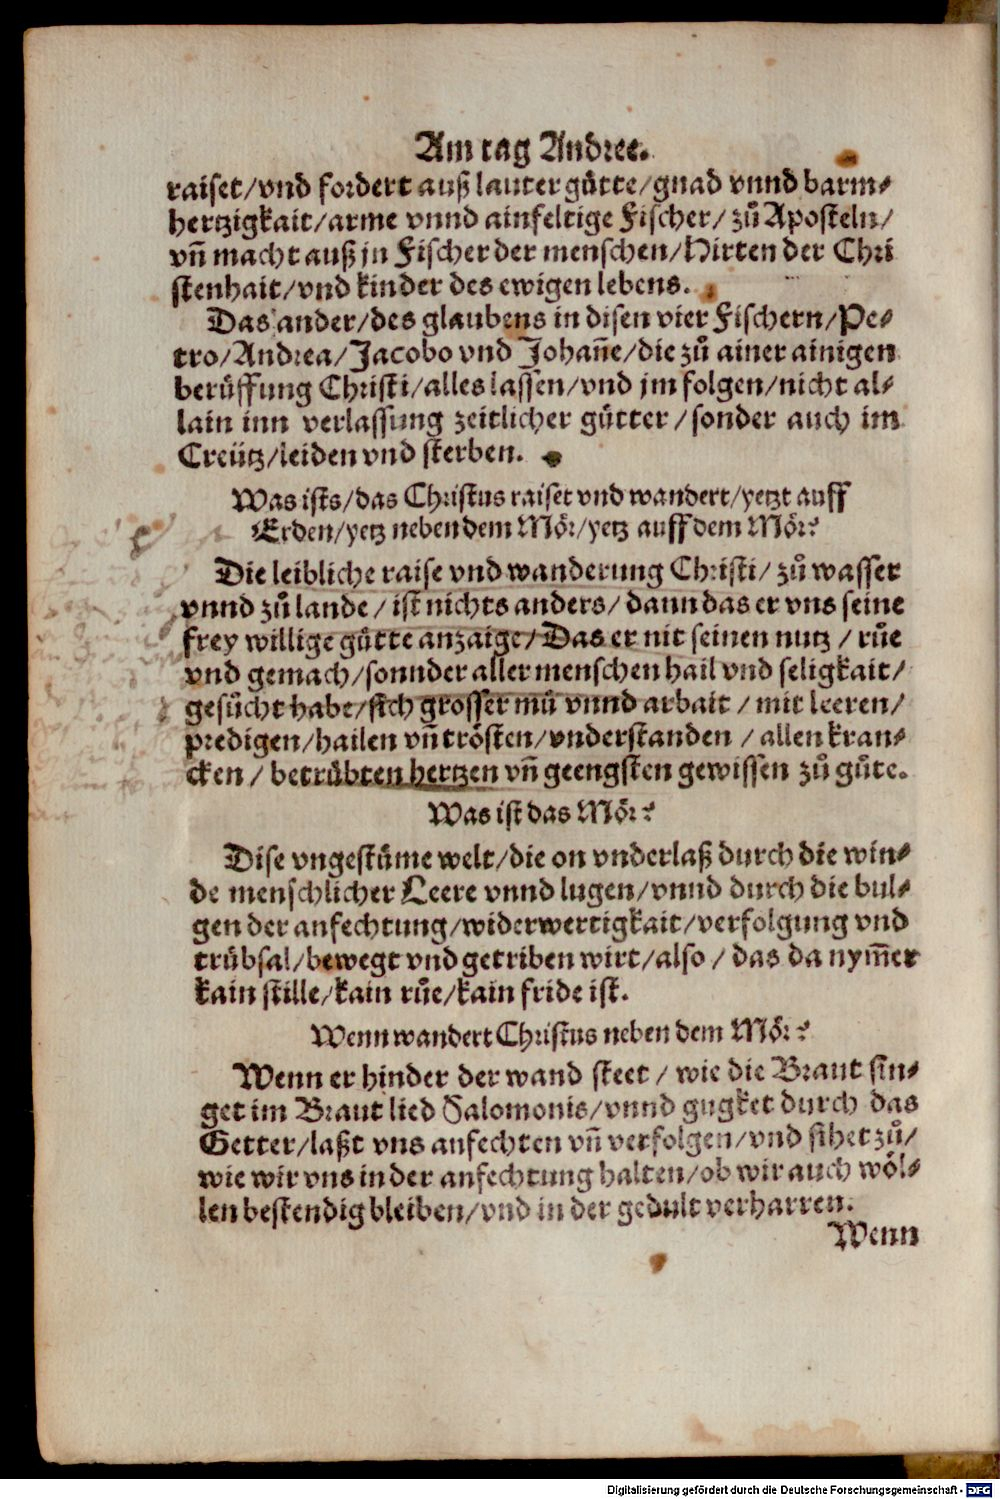 Am tag Andree.
raiset/vnd fordert auß lauter gůtte/gnad vnnd barm⸗
hertzigkait/arme vnnd ainfeltige Fischer/ zů Aposteln/
vñ macht auß jn Fischer der menschen/Hirten der Chri
stenhait/vnd kinder des ewigen lebens.
Das ander/des glaubens in disen vier Fischern/Pe⸗
tro/Andrea/Jacobo vnd Johañe/die zů ainer ainigen
berůffung Christi/alles lassen/vnd jm folgen/nicht al⸗
lain inn verlassung zeitlicher gůtter/sonder auch im
Creütz/leiden vnd sterben.
Was ists/das Christus raiset vnd wandert/yetzt auff
Erden/yetz neben dem Mör/yetz auff dem Mör?
Die leibliche raise vnd wanderung Christi/ zů wasser
vnnd zů lande/ist nichts anders/dann das er vns seine
frey willige gůtte anzaige/Das er nit seinen nutz/růe
vnd gemach/sonnder aller menschen hail vnd seligkait/
gesůcht habe/sich grosser mů vnnd arbait/mit leeren/
predigen/hailen vñ trösten/vnderstanden/allen kran⸗
cken/betrůbten hertzen vñ geengsten gewissen zů gůte.
Was ist das Mör?
Dise vngestůme welt/die on vnderlaß durch die win⸗
de menschlicher Leere vnnd lugen/vnnd durch die bul⸗
gen der anfechtung/widerwertigkait/verfolgung vnd
trůbsal/bewegt vnd getriben wirt/also/das da nym̃er
kain stille/kain růe/kain fride ist.
Wenn wandert Christus neben dem Mör?
Wenn er hinder der wand steet/wie die Braut sin⸗
get im Braut lied Salomonis/vnnd gugket durch das
Getter/laßt vns anfechten vñ verfolgen/vnd sihet zů/
wie wir vns in der anfechtung halten/ob wir auch wöl⸗
len bestendig bleiben/vnd in der gedult verharren.
Wenn
Digitalisierung gefördert durch die Deutsche Forschungsgemeinschaft - DFG